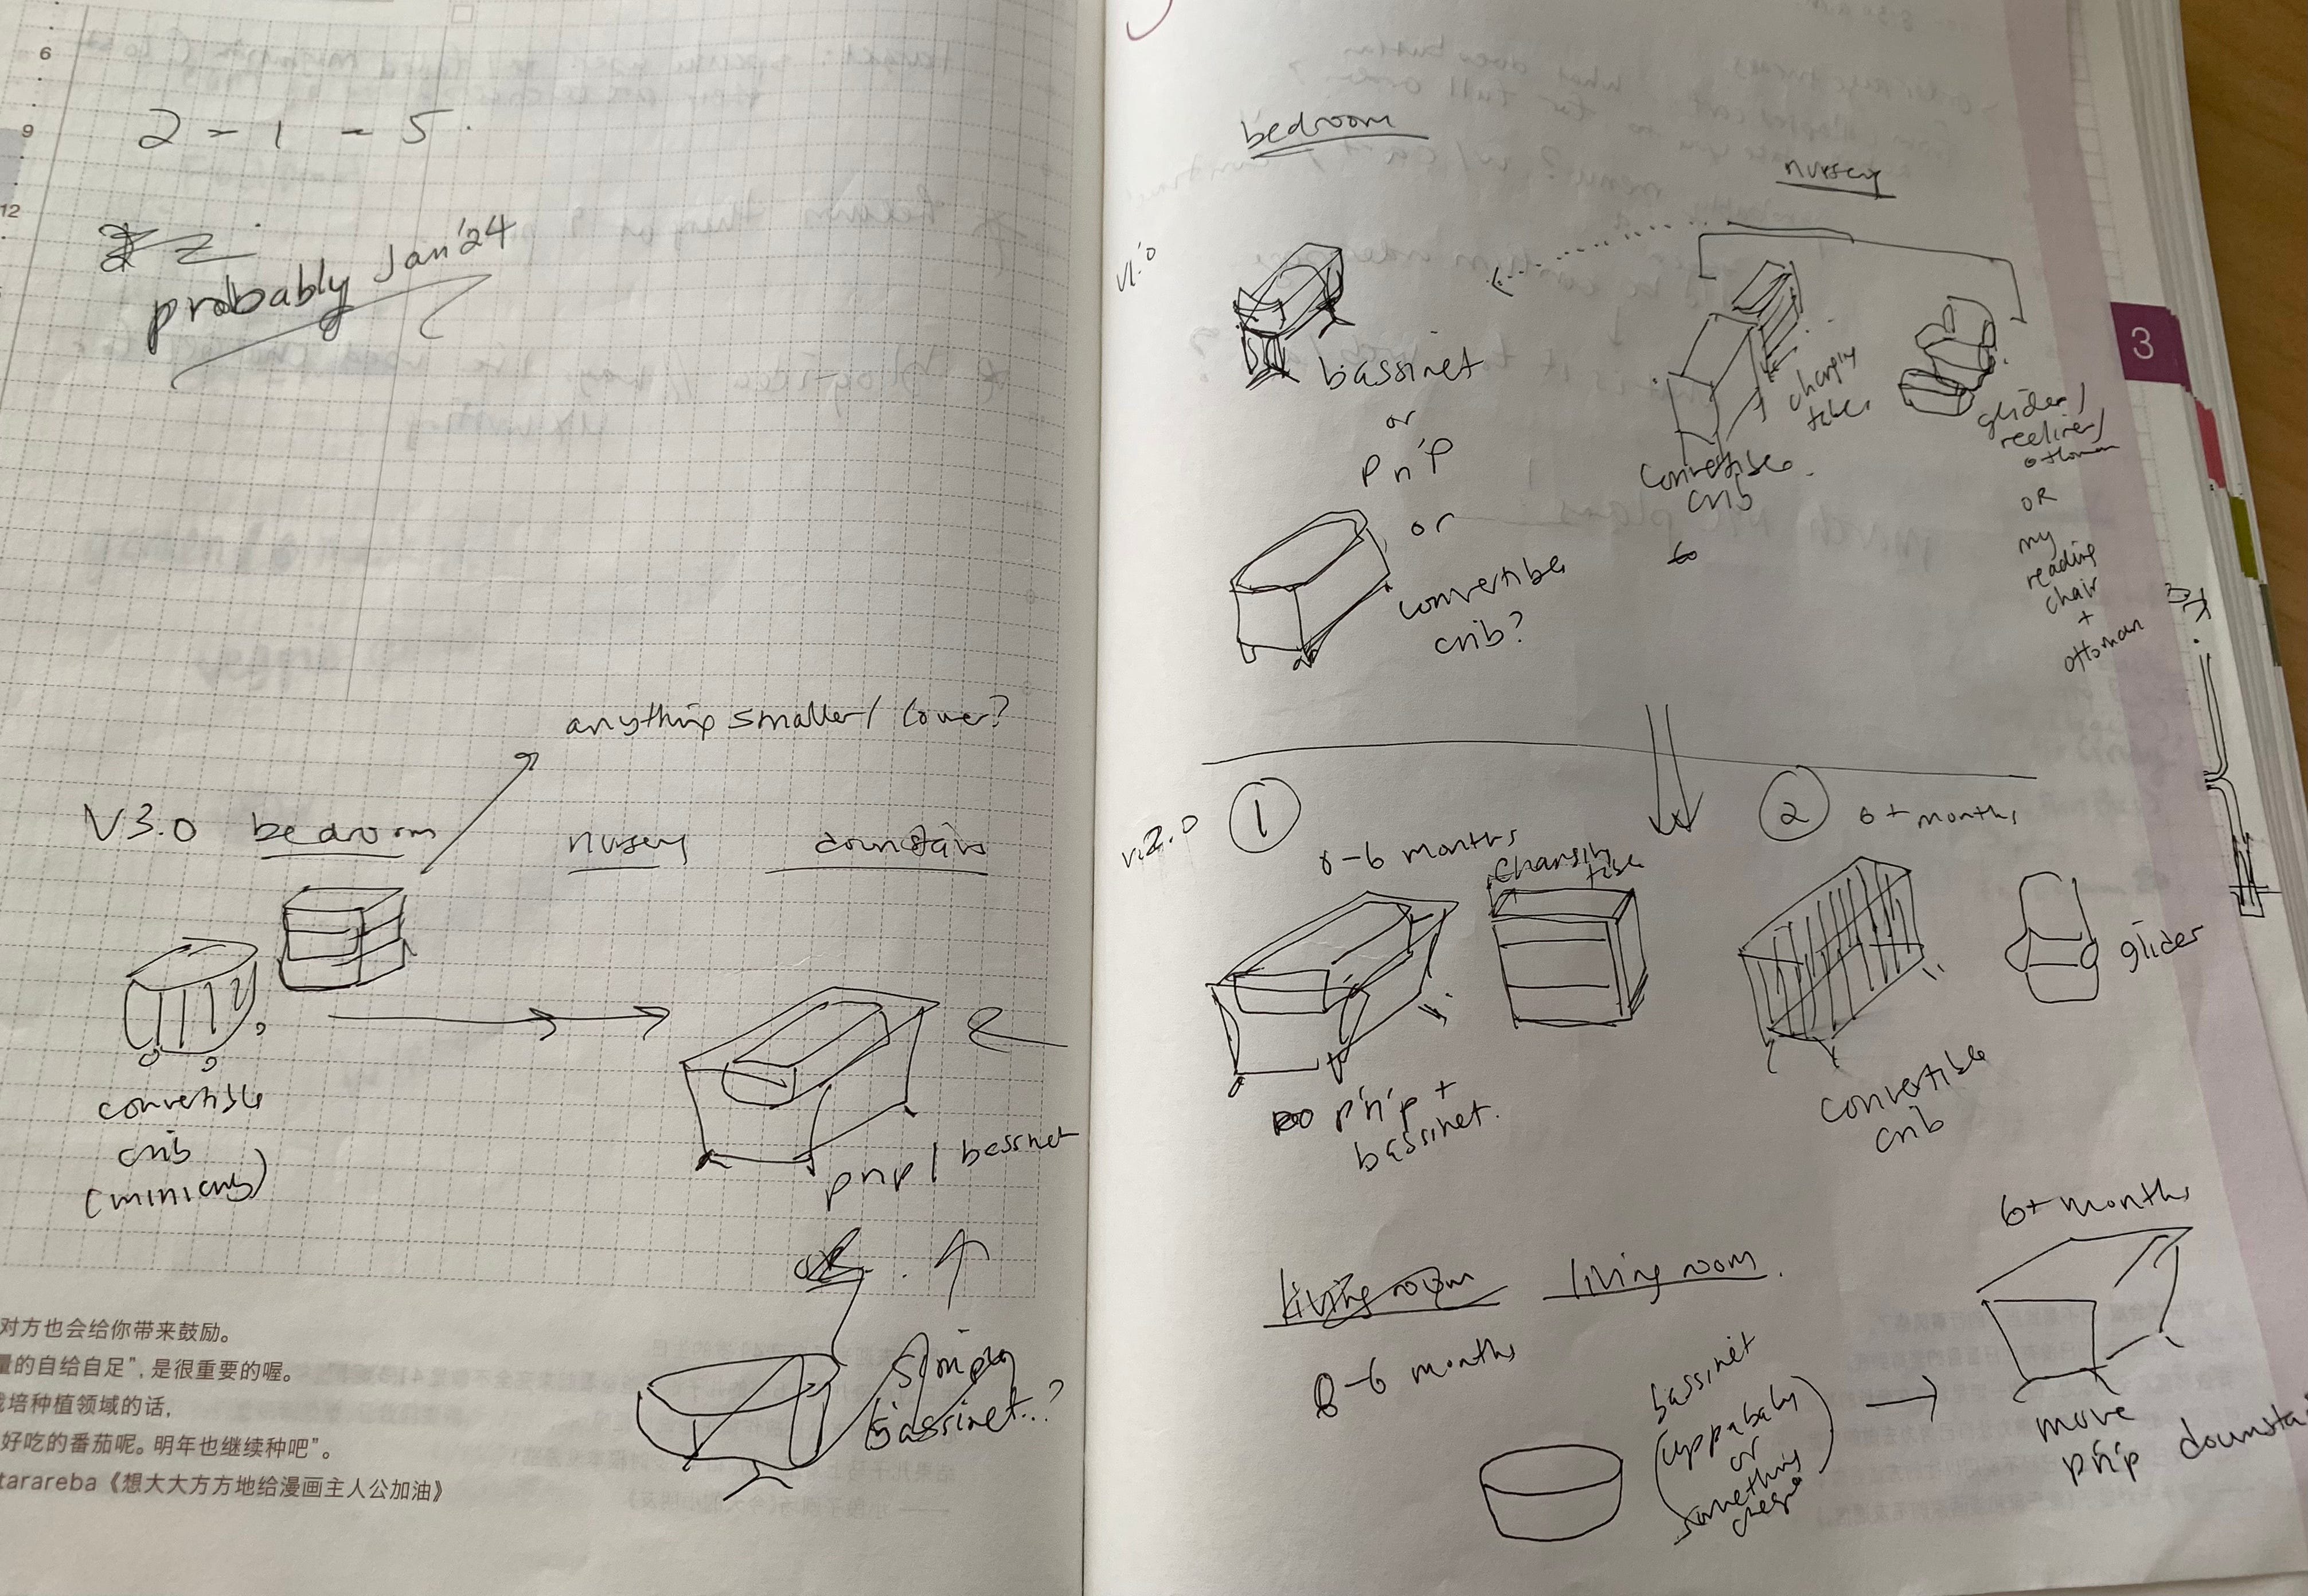 6
9
12
2 - 1 - 5.
probably Jan '24
anything smaller / lower?
V3.0 bedroom
nursery
downstairs
convertible
crib
(mini crib)
pnp / bassinet
or
simple
bassinet..?
对方也会给你带来鼓励。
量的自给自足”，是很重要的喔。
栽培种植领域的话，
好吃的番茄呢。明年也继续种吧”。
tarareba《想大大方方地给漫画主人公加油》
bedroom
nursery
v1.0
bassinet
or
p n' p
or
convertible
crib?
changing
table
convertible
crib
glider/
recliner/
ottoman
OR
my
reading
chair
+
ottoman
3
v.2.0
1
0-6 months
changing
table
2
6+ months
p'n'p +
bassinet.
convertible
crib
glider
living room
living room.
0-6 months
bassinet
(uppababy
or
something
cheaper)
6+ months
move
p'n'p downstai